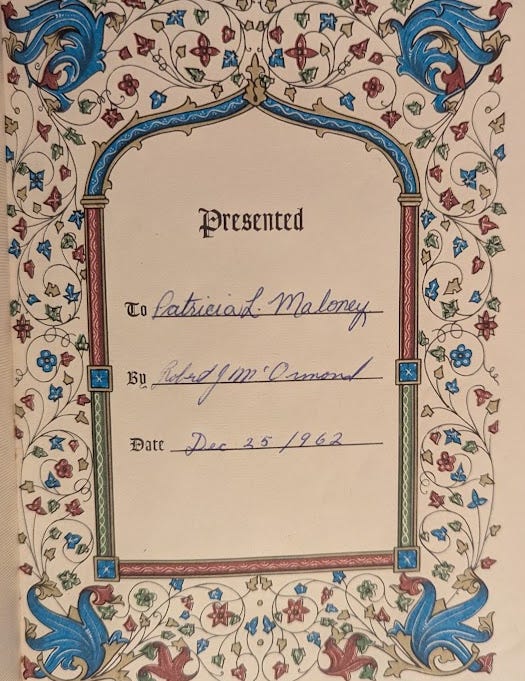 Presented
To Patricia L. Maloney
By Robert J McOrmond
Date Dec 25 1962